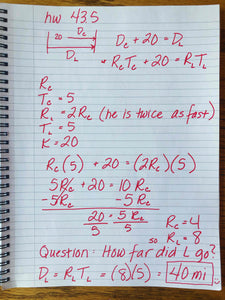 hw 435
20 Dc
DL
Dc + 20 = DL
= RcTc + 20 = RLTL
Rc
Tc = 5
RL = 2Rc (he is twice as fast)
TL = 5
K = 20
Rc(5) + 20 = (2Rc)(5)
5Rc + 20 = 10 Rc
-5Rc -5Rc
20 = 5 Rc
5 5
Rc = 4
so RL = 8
Question: How far did L go?
DL = RLTL = (8)(5) = 40 mi